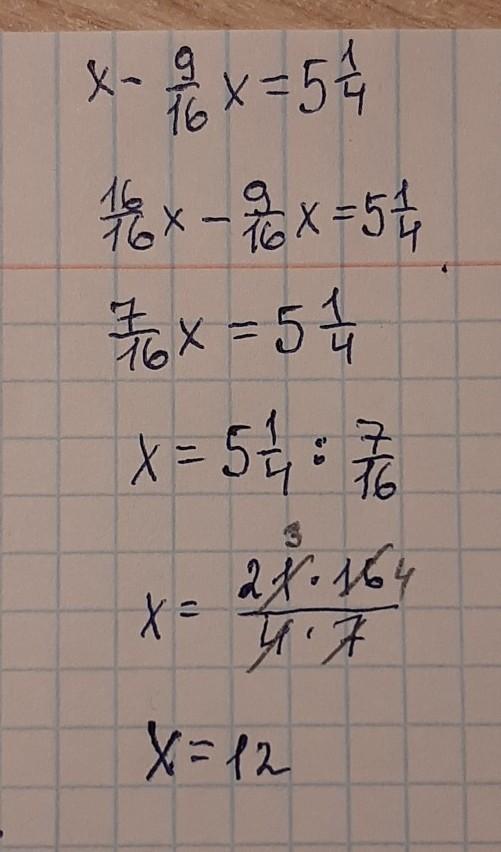 x - 9/16 x = 5 1/4
16/16 x - 9/16 x = 5 1/4
7/16 x = 5 1/4
x = 5 1/4 : 7/16
3
x = 21 · 16 4 / 4 · 7
x = 12